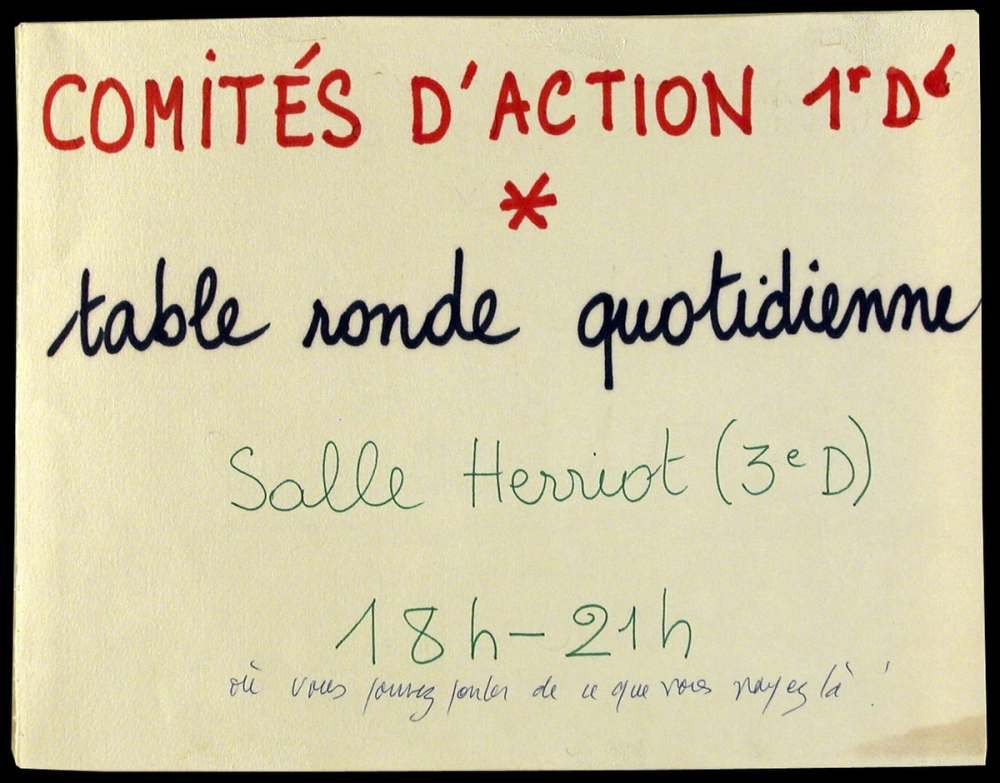 COMITÉS D'ACTION 1er Dé
*
table ronde quotidienne
Salle Herriot (3e D)
18h-21h
où vous pouvez parler de ce que vous voyez là !